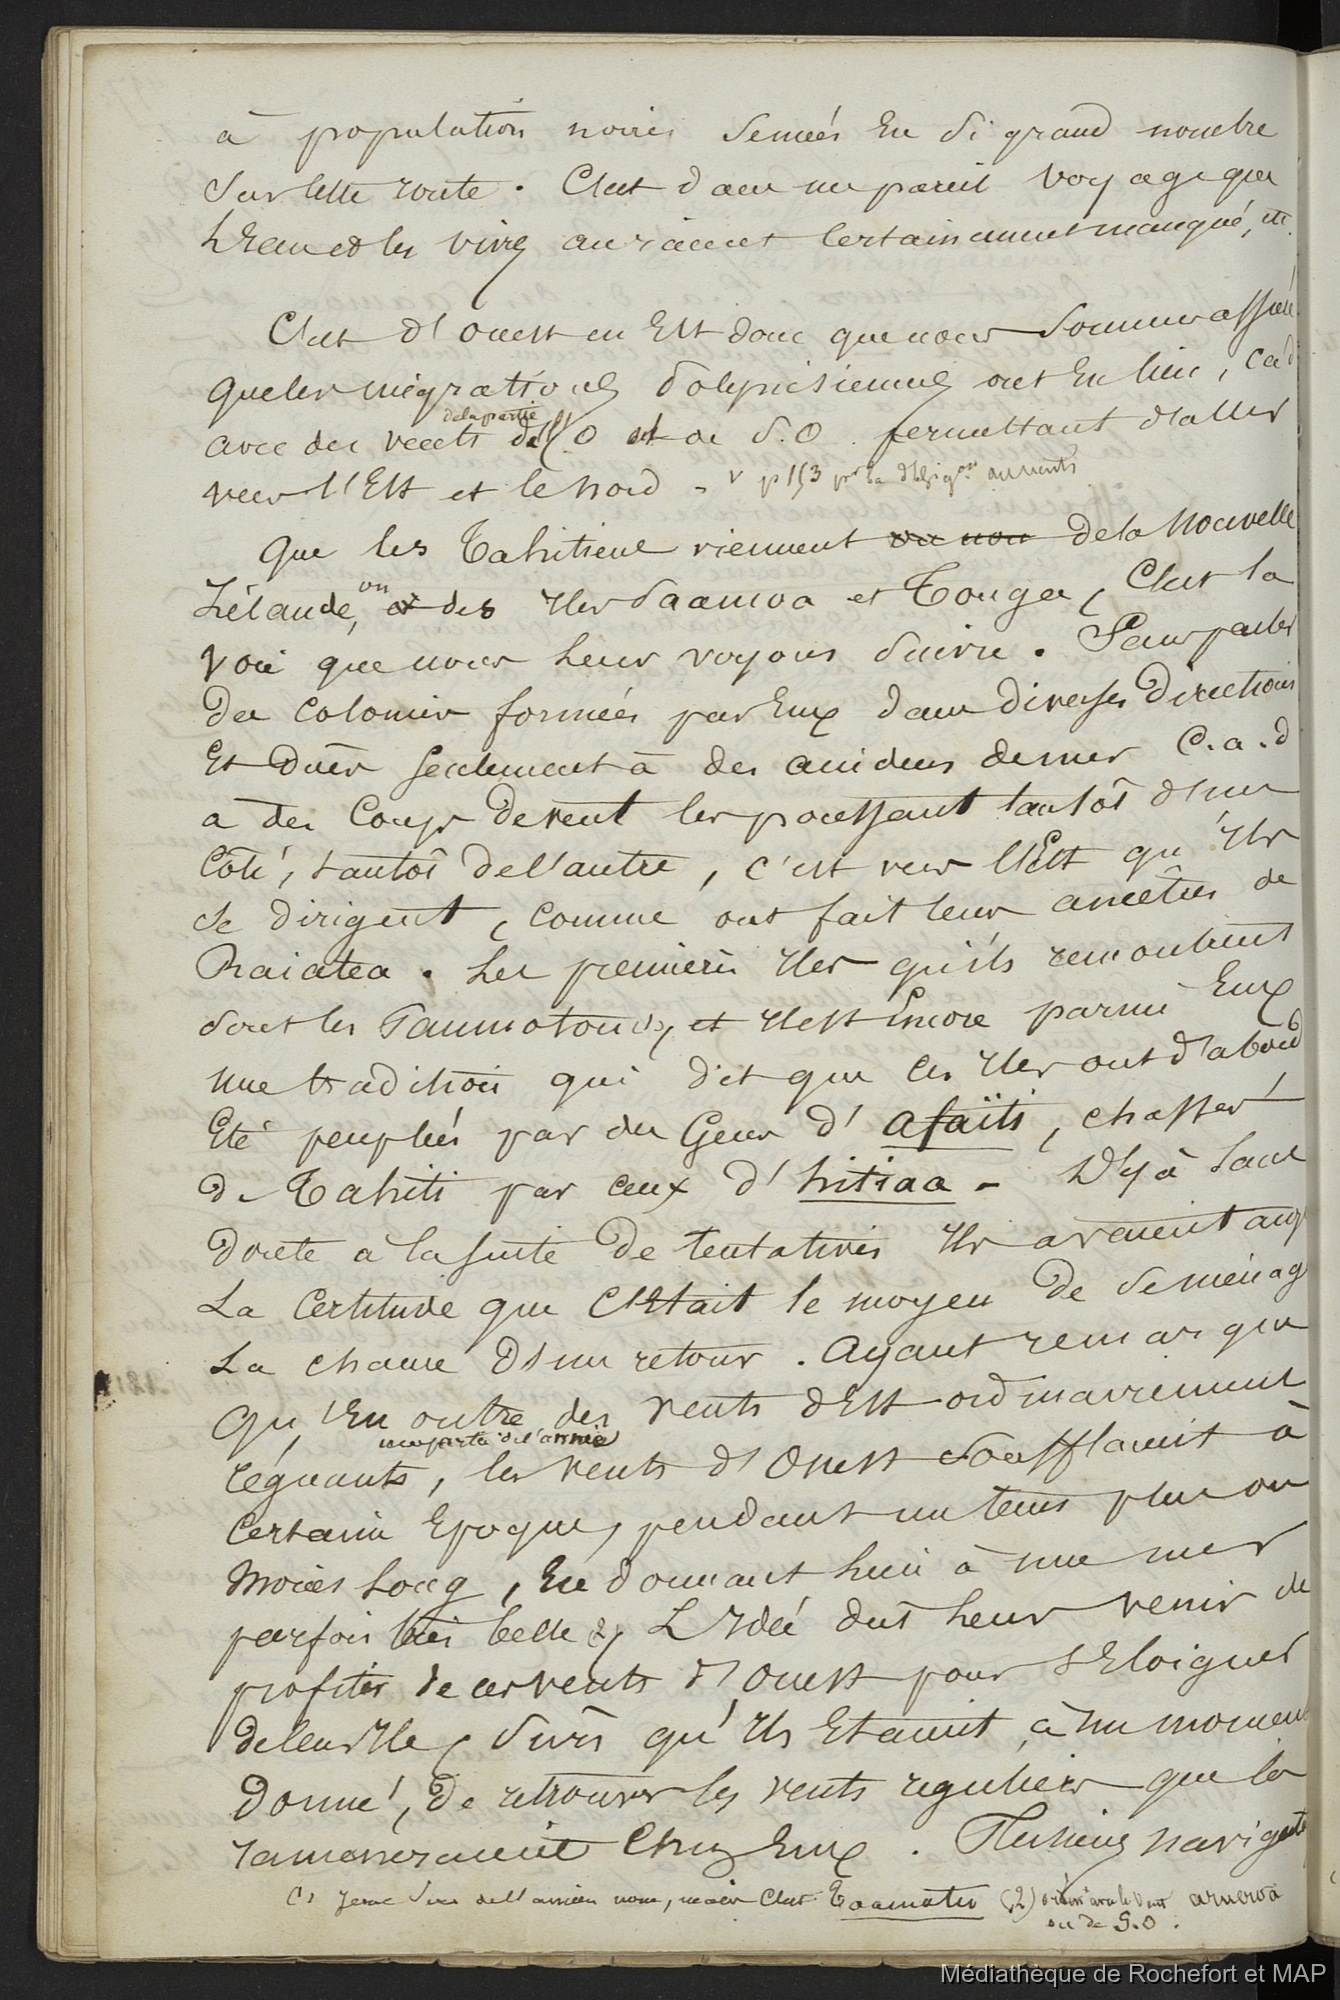 à population noires semées En si grand nombre
Sur cette route. C'est dans un pareil voyage que
L'Eau et les vivres auraient certainement manqué, etc.
C'est d'ouest en Est donc que nous sommes assuré
que les migrations Polynésiennes ont Eu lieu, càd
de la partie
avec des vents de l'O et de S.O. permettant d'aller
vers l'Est et le Nord - v p 153 pr la désign.on au vents
Que les Tahitiens viennent ou non de la Nouvelle
Zélande, ou des Iles Saamoa et Tonga, C'est la
voie que nous leur voyons suivre. Sans parler
des colonies formées par Eux dans diverses directions
Et dues seulement à des accidens de mer C.a.d
a des Coups de vent les poussant tantôt d'un
côté, tantôt de l'autre, c'est vers l'Est qu'Ils
se dirigent, comme ont fait leurs ancêtres de
Raiatea. Les premières Iles qu'ils rencontrent
sont les Paumotous (1), et Il est Encore parmi Eux
une tradition qui dit que ces Iles ont d'abord
Eté peuplées par des Gens d'Afaïti, chassés
de Tahiti par ceux d'hitiaa - Déjà sans
doute à la suite de tentatives Ils avaient acq
La Certitude que C'Etait le moyen de se ménag
La chance d'un retour. Ayant remarqué
qu'En outre des vents d'Est ordinairement
une partie de l'année
régnants, les vents d'Ouest soufflaient à
Certaines Epoques, pendant un tems plus ou
moins Long, En donnant lieu à une mer
parfois très belle (2), L'Idée dut leur venir de
profiter de ces vents d'Ouest pour s'Eloigner
de leur Ile, surs qu'Ils Etaient, à un moment
Donné, de retrouver les vents réguliers qui les
ramèneraient Chez Eux. Plusieurs navigants
(1) de l'ancien nom, mais C'est Taamotu (2) avec le vent arueroa
ou de S.O.
Médiathèque de Rochefort et MAP